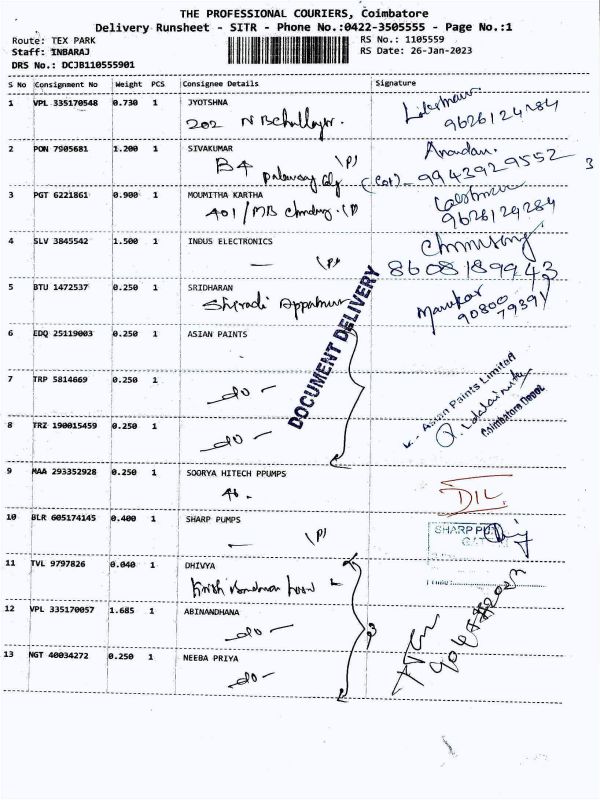 THE PROFESSIONAL COURIERS, Coimbatore
Delivery Runsheet - SITR - Phone No.:0422-3505555 - Page No.:1
Route: TEX PARK
RS No.: 1105559
Staff: INBARAJ
RS Date: 26-Jan-2023
DRS No.: DCJB110555901
S No Consignment No Weight PCS Consignee Details Signature
1 VPL 335170548 0.730 1 JYOTSHNA
202
9626124284
2 PON 7905681 1.200 1 SIVAKUMAR
B4
Anandan.
9943929552
3
3 PGT 6221861 0.900 1 MOUMITHA KARTHA
401/MB
9626124284
4 SLV 3845542 1.500 1 INDUS ELECTRONICS
8608189943
5 BTU 1472537 0.250 1 SRIDHARAN
90800
79391
DOCUMENT DELIVERY
6 EDQ 25119003 0.250 1 ASIAN PAINTS
7 TRP 5814669 0.250 1
- do -
Asian Paints Limited
Coimbatore Depot
8 TRZ 190015459 0.250 1
- do -
9 MAA 293352928 0.250 1 SOORYA HITECH PPUMPS
DIL
10 BLR 605174145 0.400 1 SHARP PUMPS
SHARP PU
11 TVL 9797826 0.040 1 DHIVYA
12 VPL 335170057 1.685 1 ABINANDHANA
- do -
13 NGT 40034272 0.250 1 NEEBA PRIYA
- do -